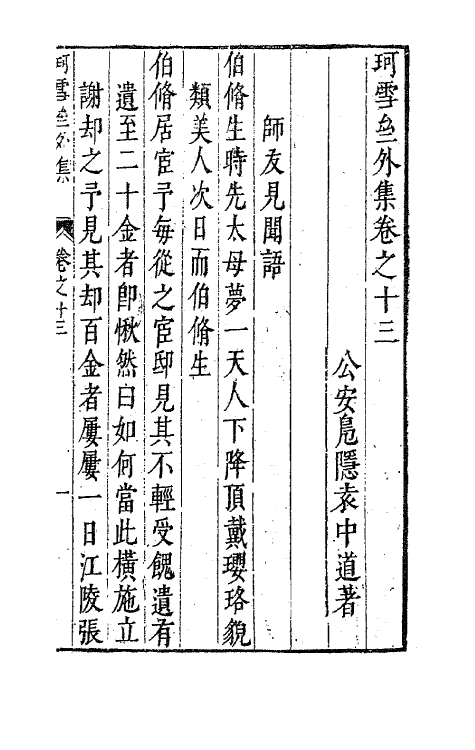 珂雪㘴外集卷之十三
公安凫隱袁中道著
師友見聞語
伯脩生時先太母夢一天人下降頂戴瓔珞貌
類美人次日而伯脩生
伯脩居宦予每從之宦邸見其不輕受餽遺有
遺至二十金者卽愀然曰如何當此橫施立
謝却之予見其却百金者屢屢一日江陵張
珂雪㘴外集
卷之十三
一